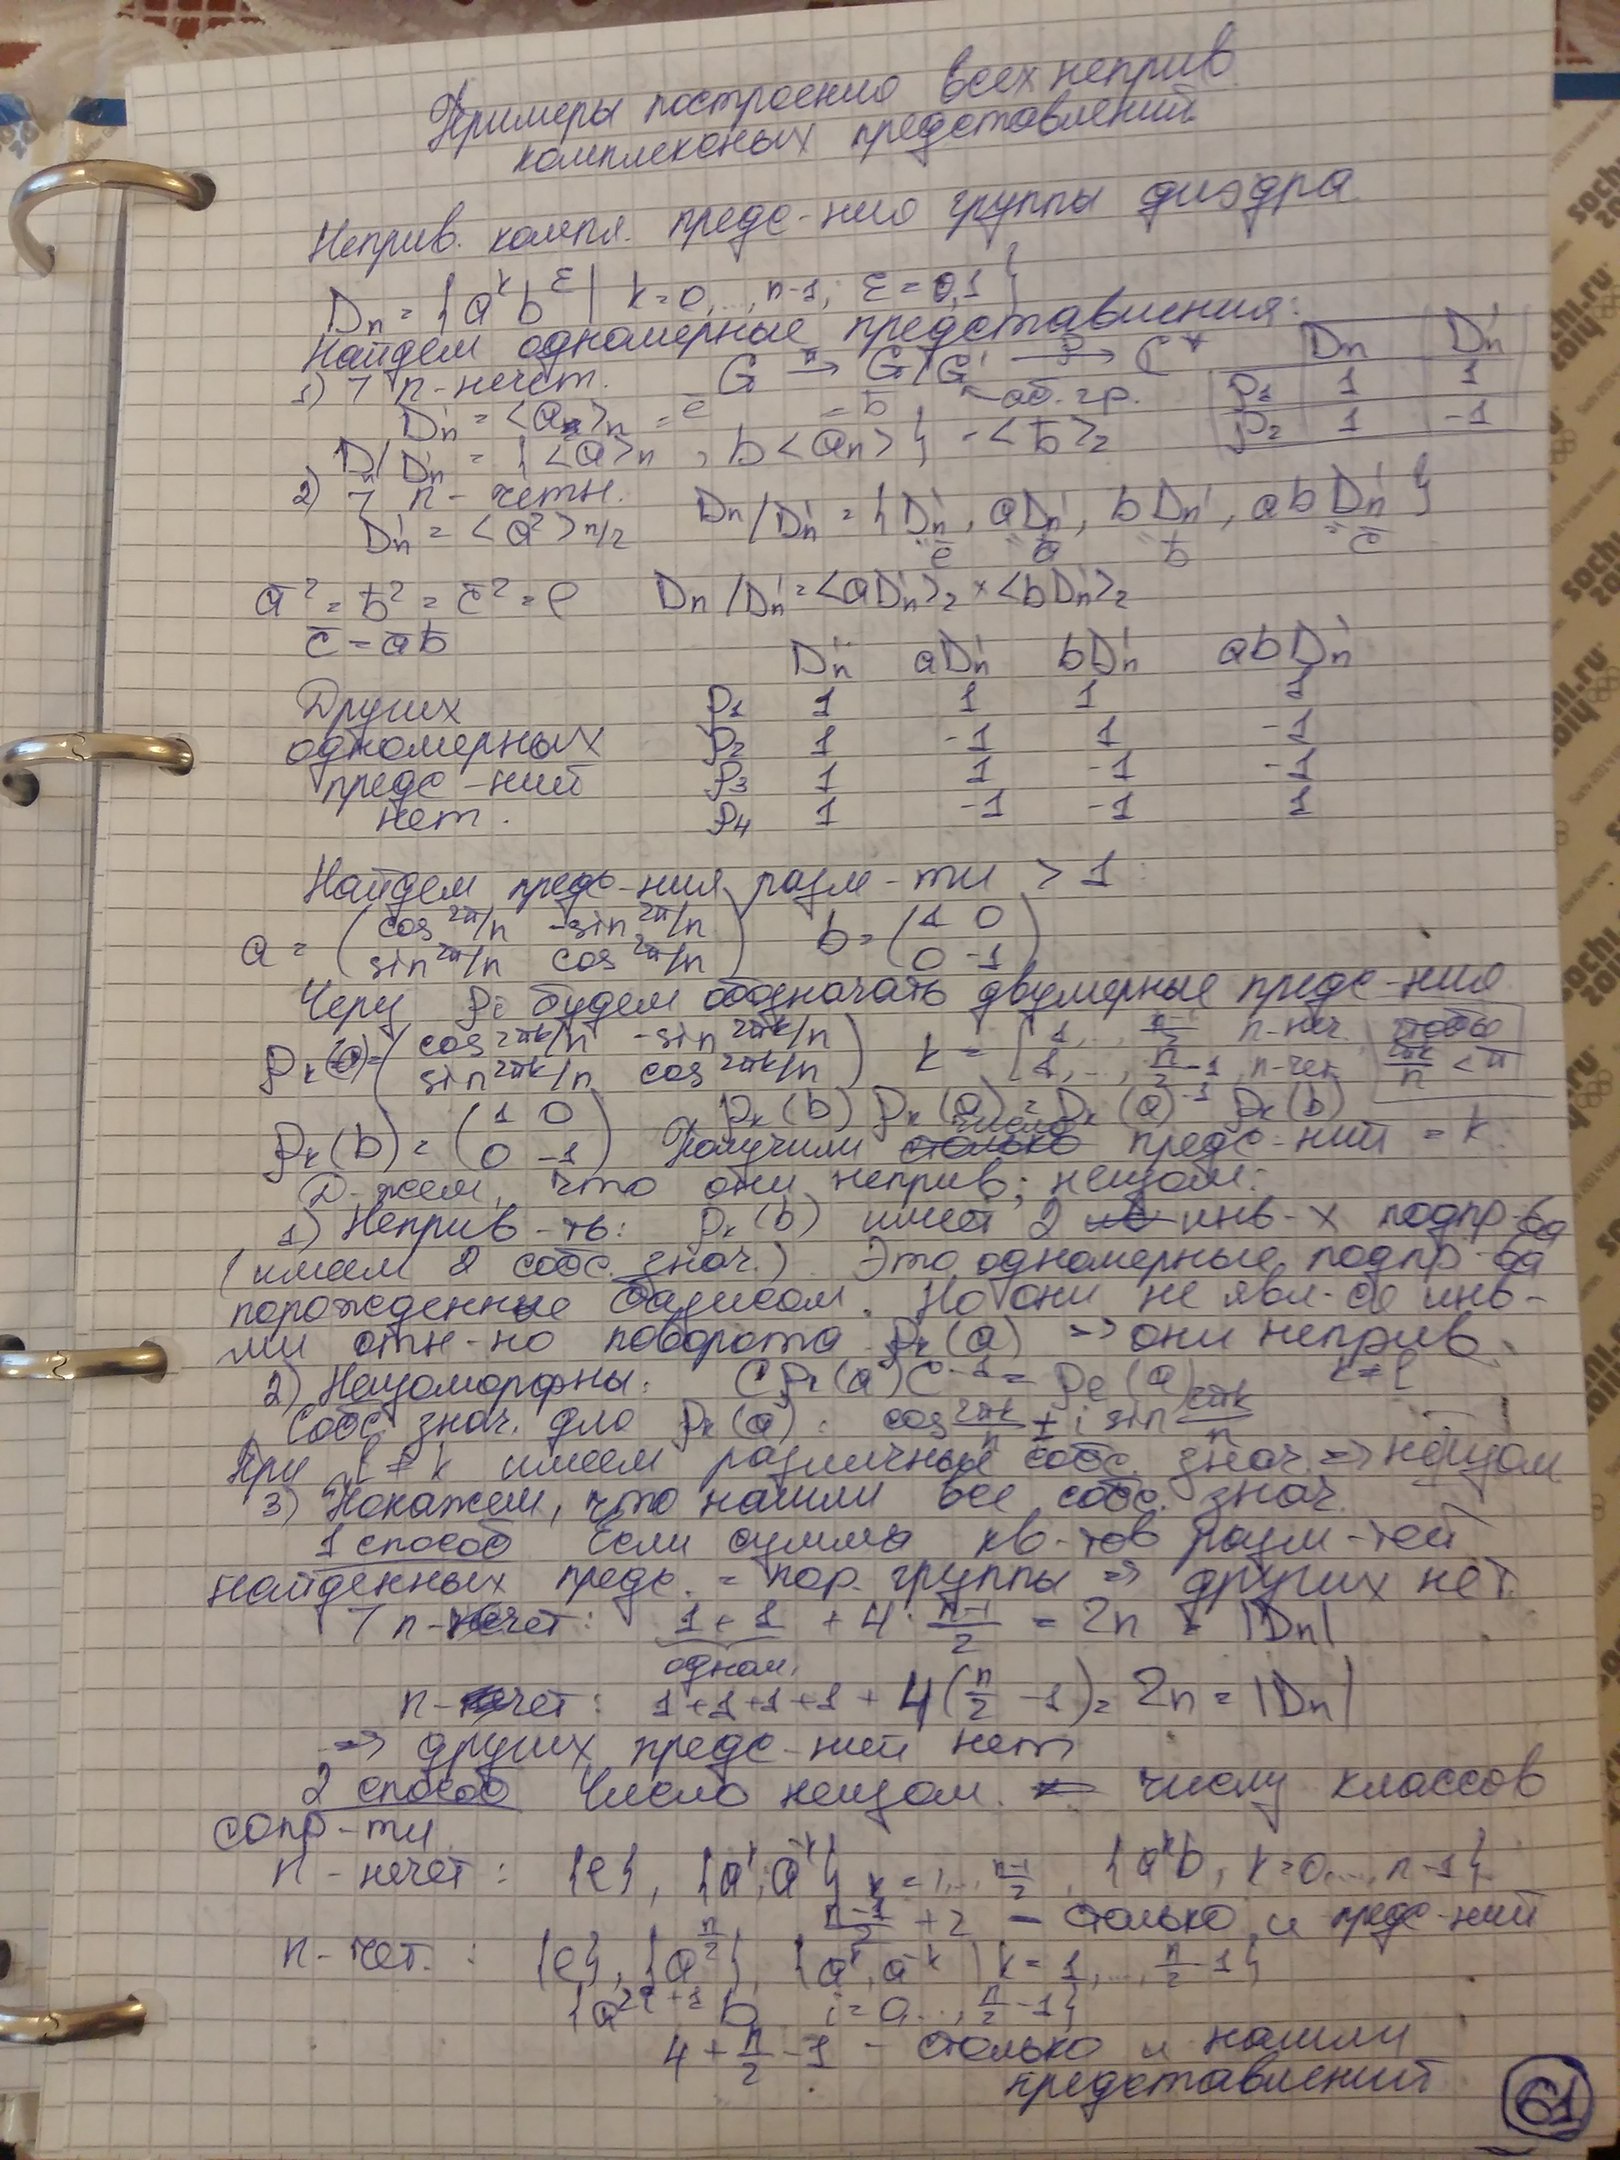 Примеры построения всех неприв
комплексных представлений
Неприв. компл. предс-ния группы диэдра
Dₙ = {aᵏb^ε | k=0,...,n-1; ε=0,1}
Найдем одномерные представления:
1) ] n-нечёт. G → G/G' → C* Dₙ Dₙ'
Dₙ' = <a>ₙ = e = b аб. гр. ρ₁ 1 1
Dₙ/Dₙ' = {<a>ₙ, b<aₙ>} = <b>₂ ρ₂ 1 -1
2) ] n-четн. Dₙ/Dₙ' = {Dₙ', aDₙ', bDₙ', abDₙ'}
Dₙ' = <a²>n/2 e a b c
a² = b² = c² = e Dₙ/Dₙ' = <aDₙ'>₂ × <bDₙ'>₂
c = ab
Dₙ' aDₙ' bDₙ' abDₙ'
Других ρ₁ 1 1 1 1
одномерных ρ₂ 1 -1 1 -1
предс-ний ρ₃ 1 1 -1 -1
нет. ρ₄ 1 -1 -1 1
Найдем предс-ния разм-ти > 1
a = (cos 2π/n -sin 2π/n b = (1 0
sin 2π/n cos 2π/n) 0 -1)
Через ρᵢ будем обозначать двумерные предс-ния
ρₖ(a) = (cos 2πk/n -sin 2πk/n k = [1,..., n-1/2 n-неч. чтобы
sin 2πk/n cos 2πk/n) 1,..., n/2 -1, n-чет 2πk/n < π
ρₖ(b) = (1 0 ρₖ(b) ρₖ(a) = ρₖ(a)⁻¹ ρₖ(b)
0 -1) Получили число предс-ний = k.
Д-жем, что они неприв; неизом:
1) Неприв-ть: ρₖ(b) имеет 2 инв-х подпр-ва
(имеем 2 собс. знач.) Это одномерные подпр-ва
порожденные базисом. Но они не явл-ся инв-
ми отн-но поворота ρₖ(a) => они неприв.
2) Неизоморфны: Cρₖ(a)C⁻¹ = ρₗ(a) k≠l
Собс. знач. для ρₖ(a): cos 2πk/n ± i sin 2πk/n
При l ≠ k имеем различные собс. знач. => неизом
3) Покажем, что нашли все собс. знач.
1 способ Если сумма кв-тов разм-тей
найденных предс. = пор. группы => других нет.
] n-нечет: 1+1 + 4 · n-1/2 = 2n = |Dₙ|
одном.
n-чет: 1+1+1+1 + 4(n/2 -1) = 2n = |Dₙ|
=> других предс-ний нет
2 способ Число неизом. = числу классов
сопр-ти.
n-нечет: {e}, {aᵏ, a⁻ᵏ} k=1,..., n-1/2, {aᵏb, k=0,..., n-1}
n-1/2 + 2 - столько и предс-ний
n-чет.: {e}, {a^n/2}, {aᵏ, a⁻ᵏ | k=1,..., n/2 -1}
{a²ⁱ⁺¹b i=0..., n/2 -1}
4 + n/2 - 1 - столько и нашли
представлений
61
sochi.ru
2014